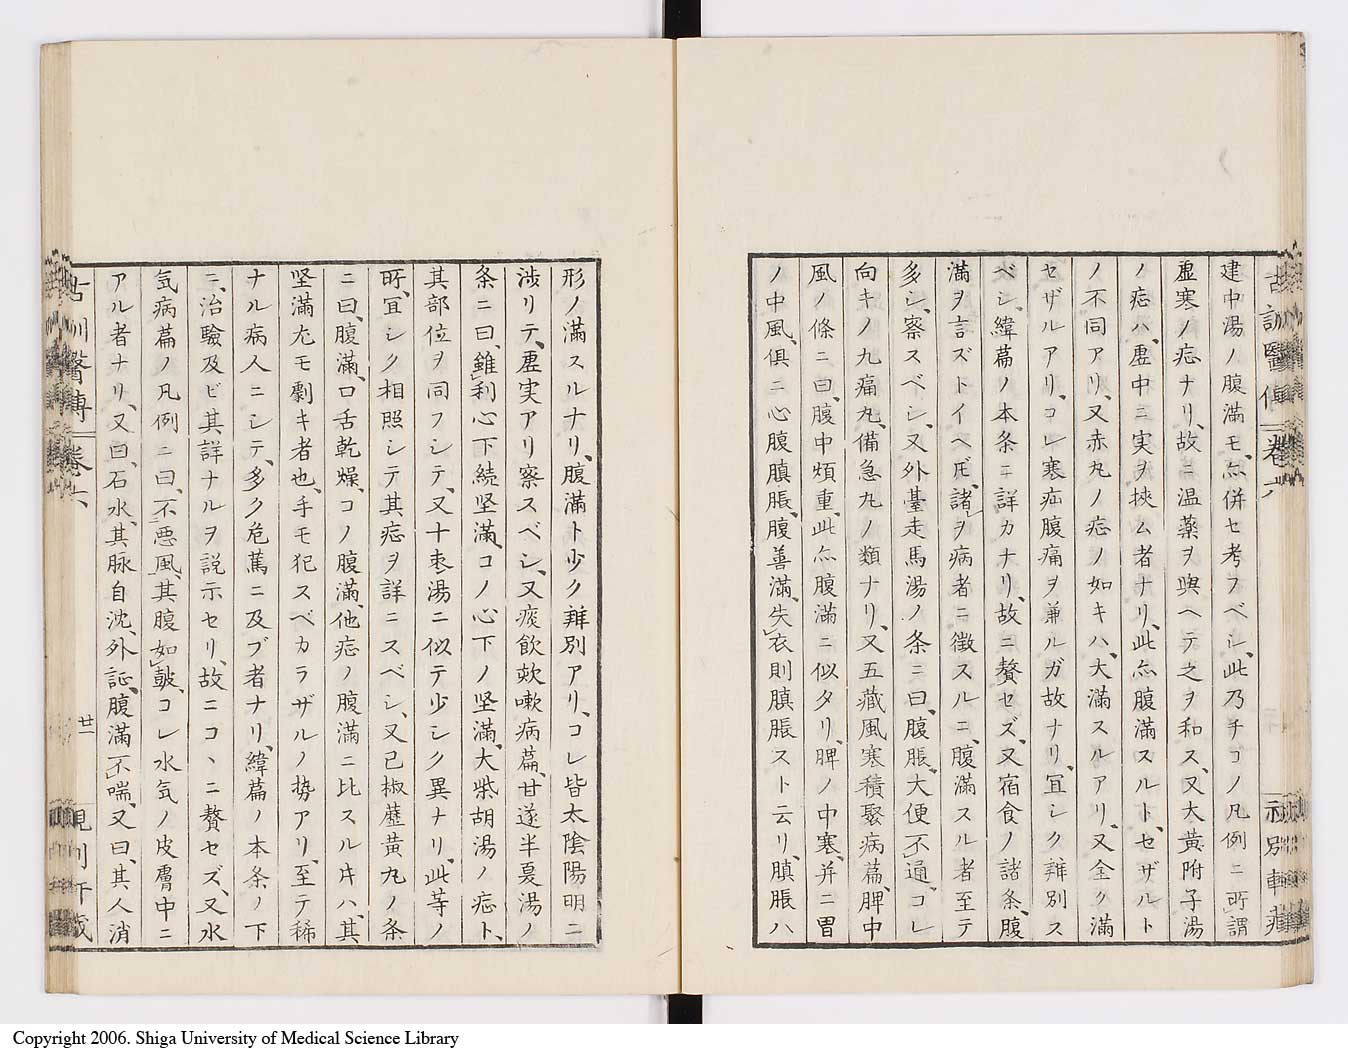 建中湯ノ腹満モ、亦併セ考フベシ、此乃チコノ凡例ニ所謂
虚寒ノ症ナリ、故ニ温薬ヲ與ヘテ之ヲ和ス、又大黄附子湯
ノ症ハ、虚中ニ実ヲ挾ム者ナリ、此亦腹満スルト、セザルト
ノ不同アリ、又赤丸ノ症ノ如キハ、大満スルアリ、又全ク満
セザルアリ、コレ寒疝腹痛ヲ兼ルガ故ナリ、冝シク辨別ス
ベシ、緯篇ノ本条ニ詳カナリ、故ニ贅セズ、又宿食ノ諸条、腹
満ヲ言ズトイヘ𪜈、諸ヲ病者ニ徴スルニ、腹満スル者至テ
多シ、察スベシ、又外臺走馬湯ノ条ニ曰、腹脹、大便不通、コレ
向キノ九痛丸、備急丸ノ類ナリ、又五藏風寒積聚病篇、脾中
風ノ條ニ曰、腹中煩重、此亦腹満ニ似タリ、脾ノ中寒、并ニ胃
ノ中風、俱ニ心腹䐜脹、腹善満、失衣則䐜脹スト云リ、䐜脹ハ
形ノ満スルナリ、腹満ト少ク辨別アリ、コレ皆太陰陽明ニ
渉リテ、虚実アリ察スベシ、又痰飲欬嗽病篇、甘遂半夏湯ノ
条ニ曰、雖利心下続坚満、コノ心下ノ坚満、大柴胡湯ノ症ト、
其部位ヲ同フシテ、又十枣湯ニ似テ少シク異ナリ、此等ノ
所、冝シク相照シテ其症ヲ詳ニスベシ、又己椒藶黄丸ノ条
ニ曰、腹満、口舌乾燥、コノ腹満、他症ノ腹満ニ比スル𪜈ハ、其
坚満尤モ劇キ者也、手モ犯スベカラザルノ势アリ、至テ稀
ナル病人ニシテ、多ク危篤ニ及ブ者ナリ、緯篇ノ本条ノ下
ニ、治驗及ビ其詳ナルヲ説示セリ、故ニコヽニ贅セズ、又水
気病篇ノ凡例ニ曰、不悪風、其腹如皷、コレ水気ノ皮膚中ニ
アル者ナリ、又曰、石水、其脉自沈、外証、腹満不喘、又曰、其人消
古訓醫傳
卷六
廿二